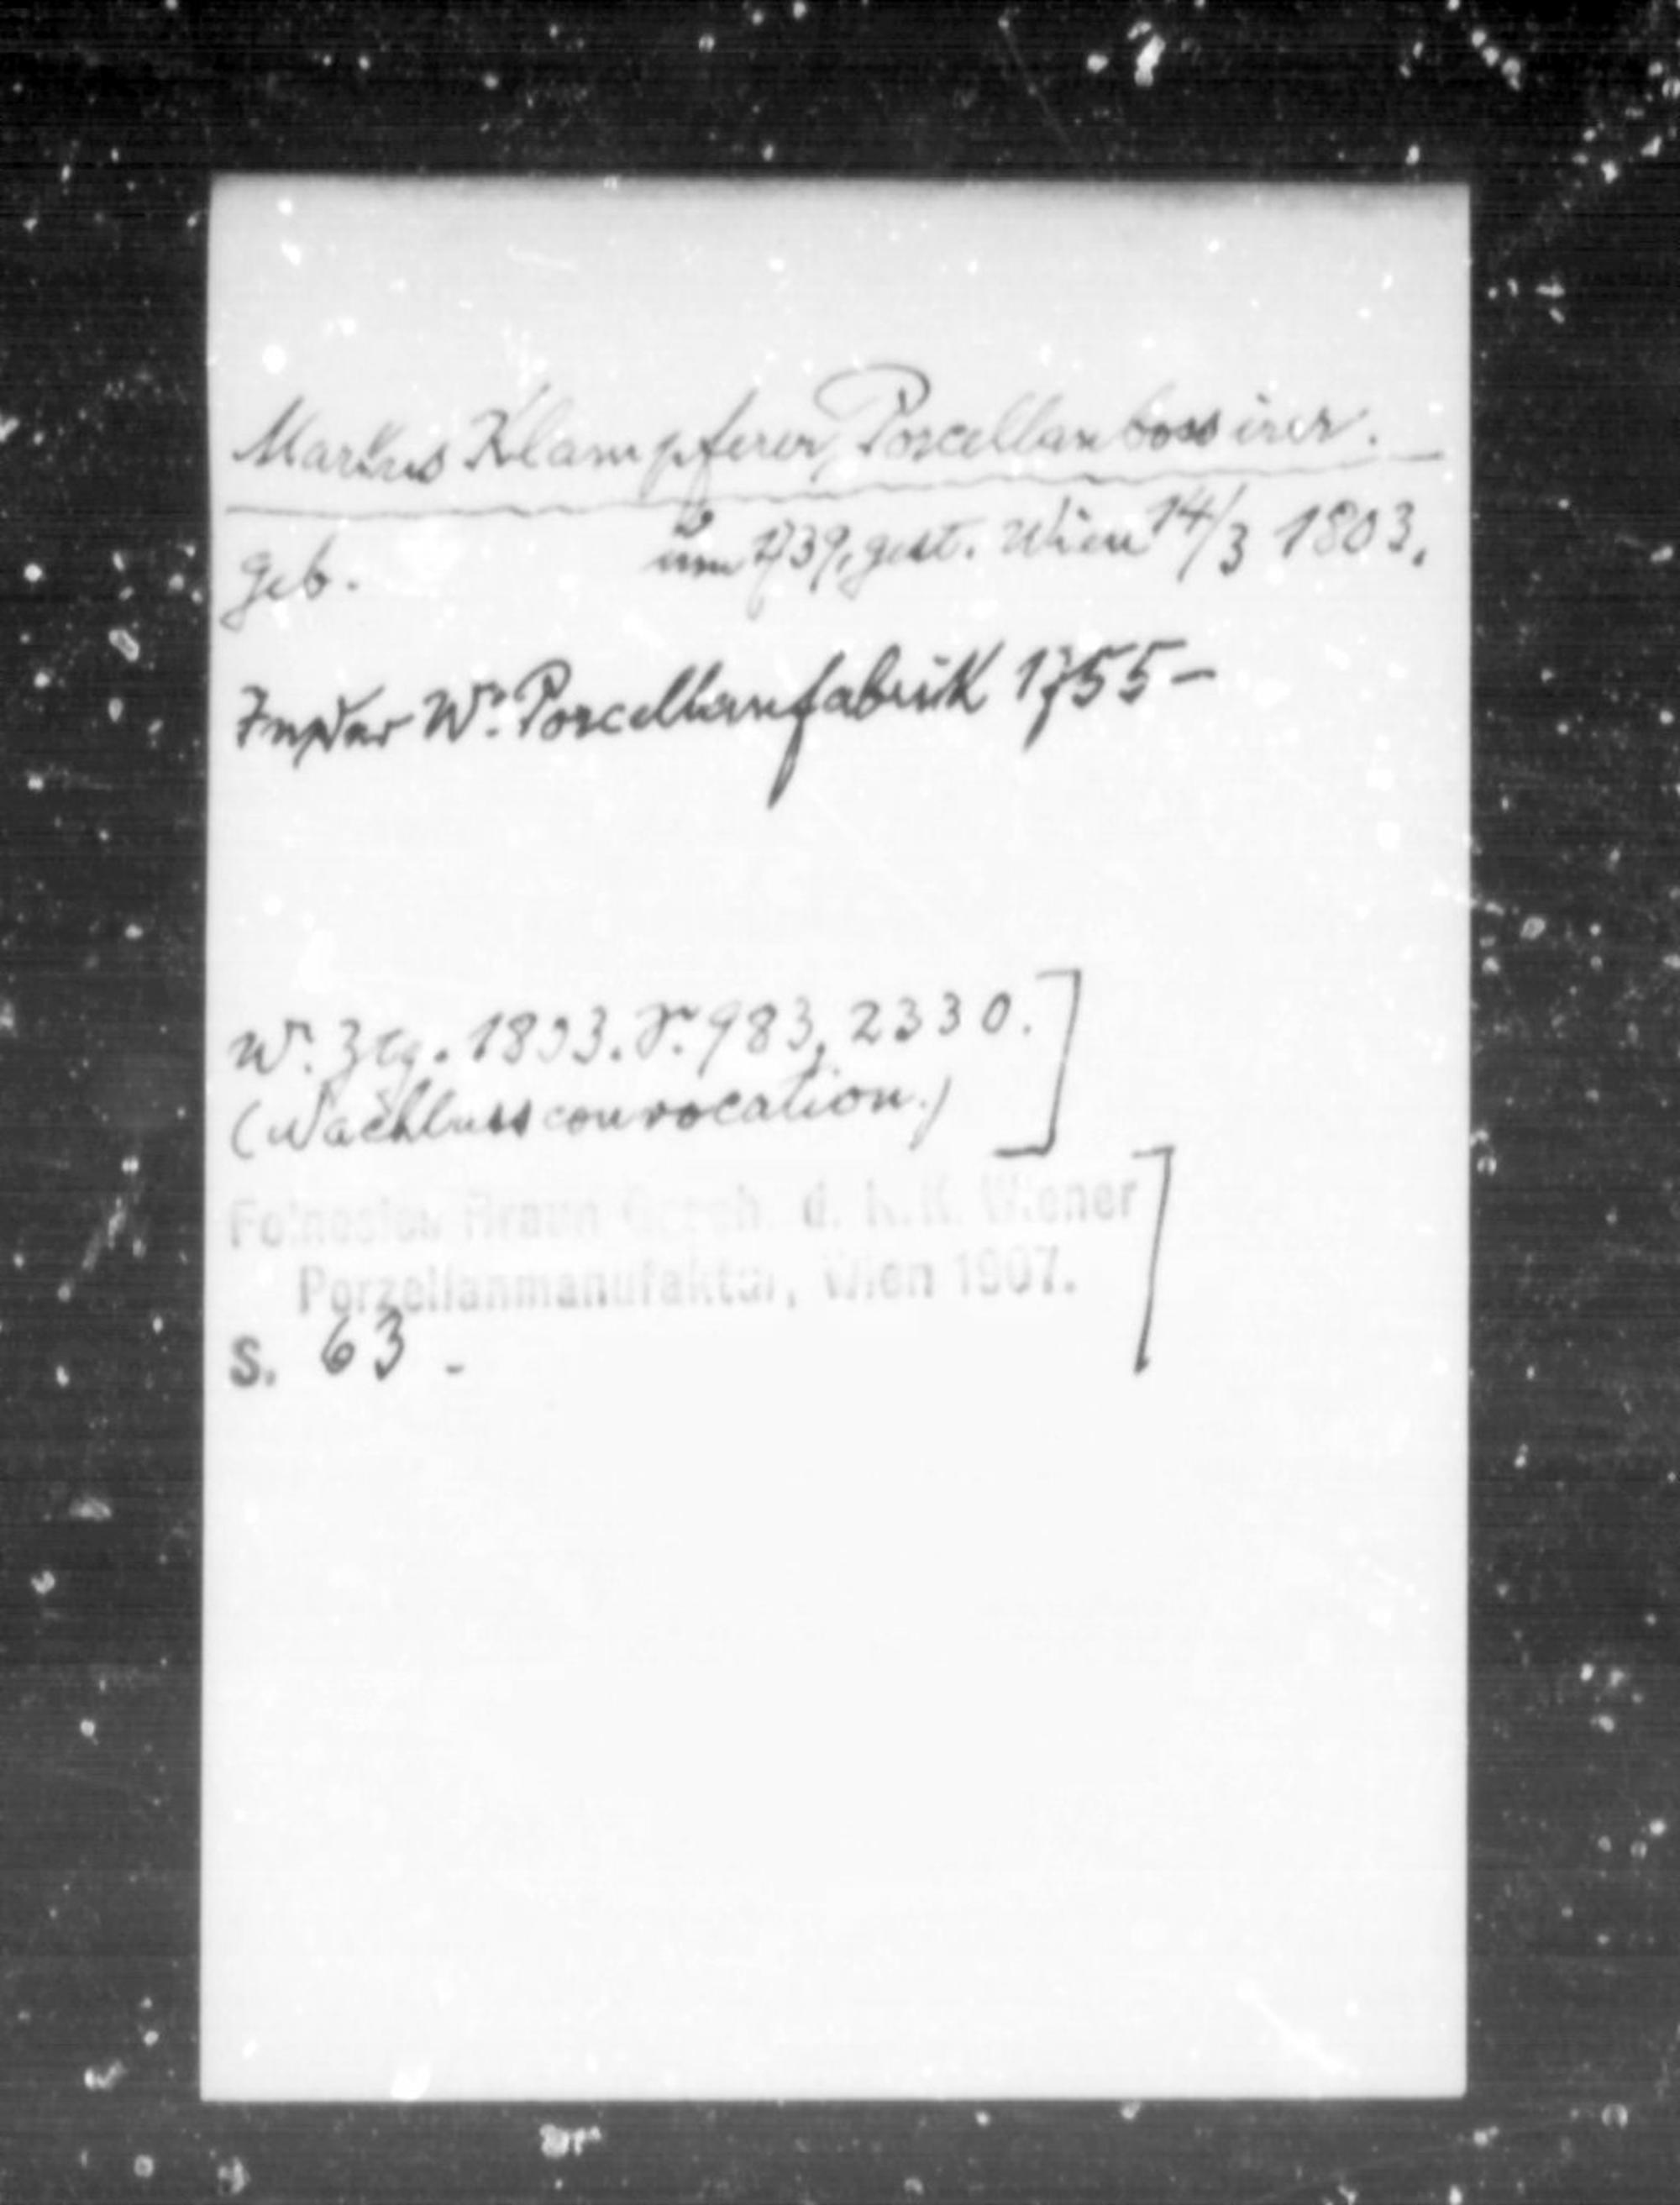 Markus Klampferer, Porcellanbossirer.
geb. um 1739, gest. Wien 14/3 1803.
In der Wr. Porcellanfabrik 1755–
Wr. Ztg. 1803. S. 983, 2330.]
(Nachlussconvocation.)
Folnesics Braun Gesch. d. k. k. Wiener
Porzellanmanufaktur, Wien 1907.]
S. 63 -